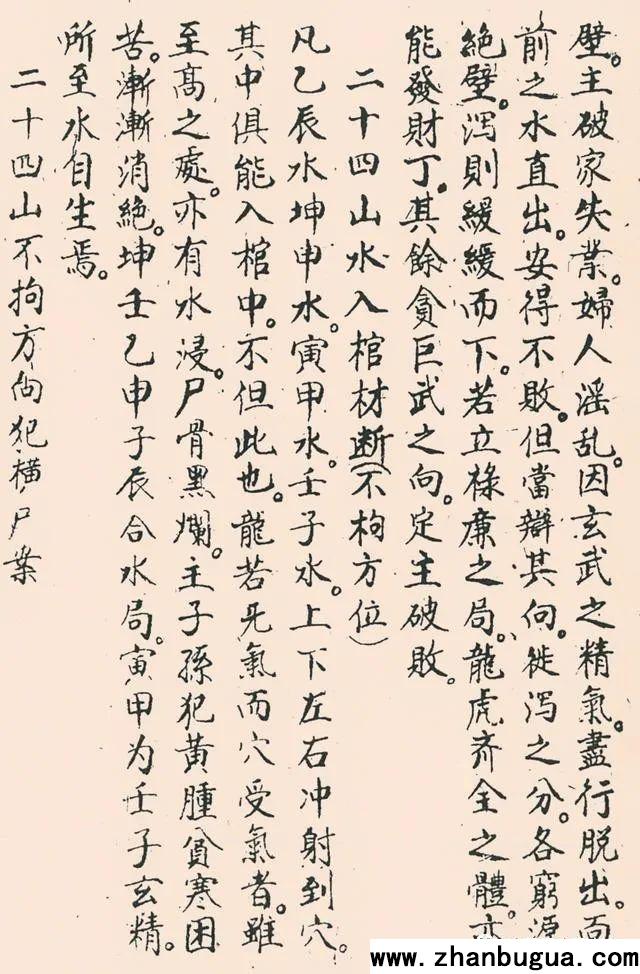 壁。主破家失業。婦人淫乱。因玄武之精氣。盡行脱出。面
前之水直出。安得不敗。但當辯其向。徙瀉之分。各窮源
絕壁。瀉則緩緩而下。若立祿廉之局。龍虎齐全之體。亦
能發財丁。其餘貪巨武之向。定主破敗。
二十四山水入棺材断（不拘方位）
凡乙辰水坤申水。寅甲水。壬子水。上下左右冲射到穴。
其中俱能入棺中。不但此也。龍若旡氣而穴受氣者。雖
至高之處。亦有水浸。尸骨黑爛。主子孫犯黃腫貧寒困
苦。漸漸消絕。坤壬乙申子辰合水局。寅甲为壬子玄精。
所至水自生焉。
二十四山不拘方向犯橫尸案
www.zhanbugua.com